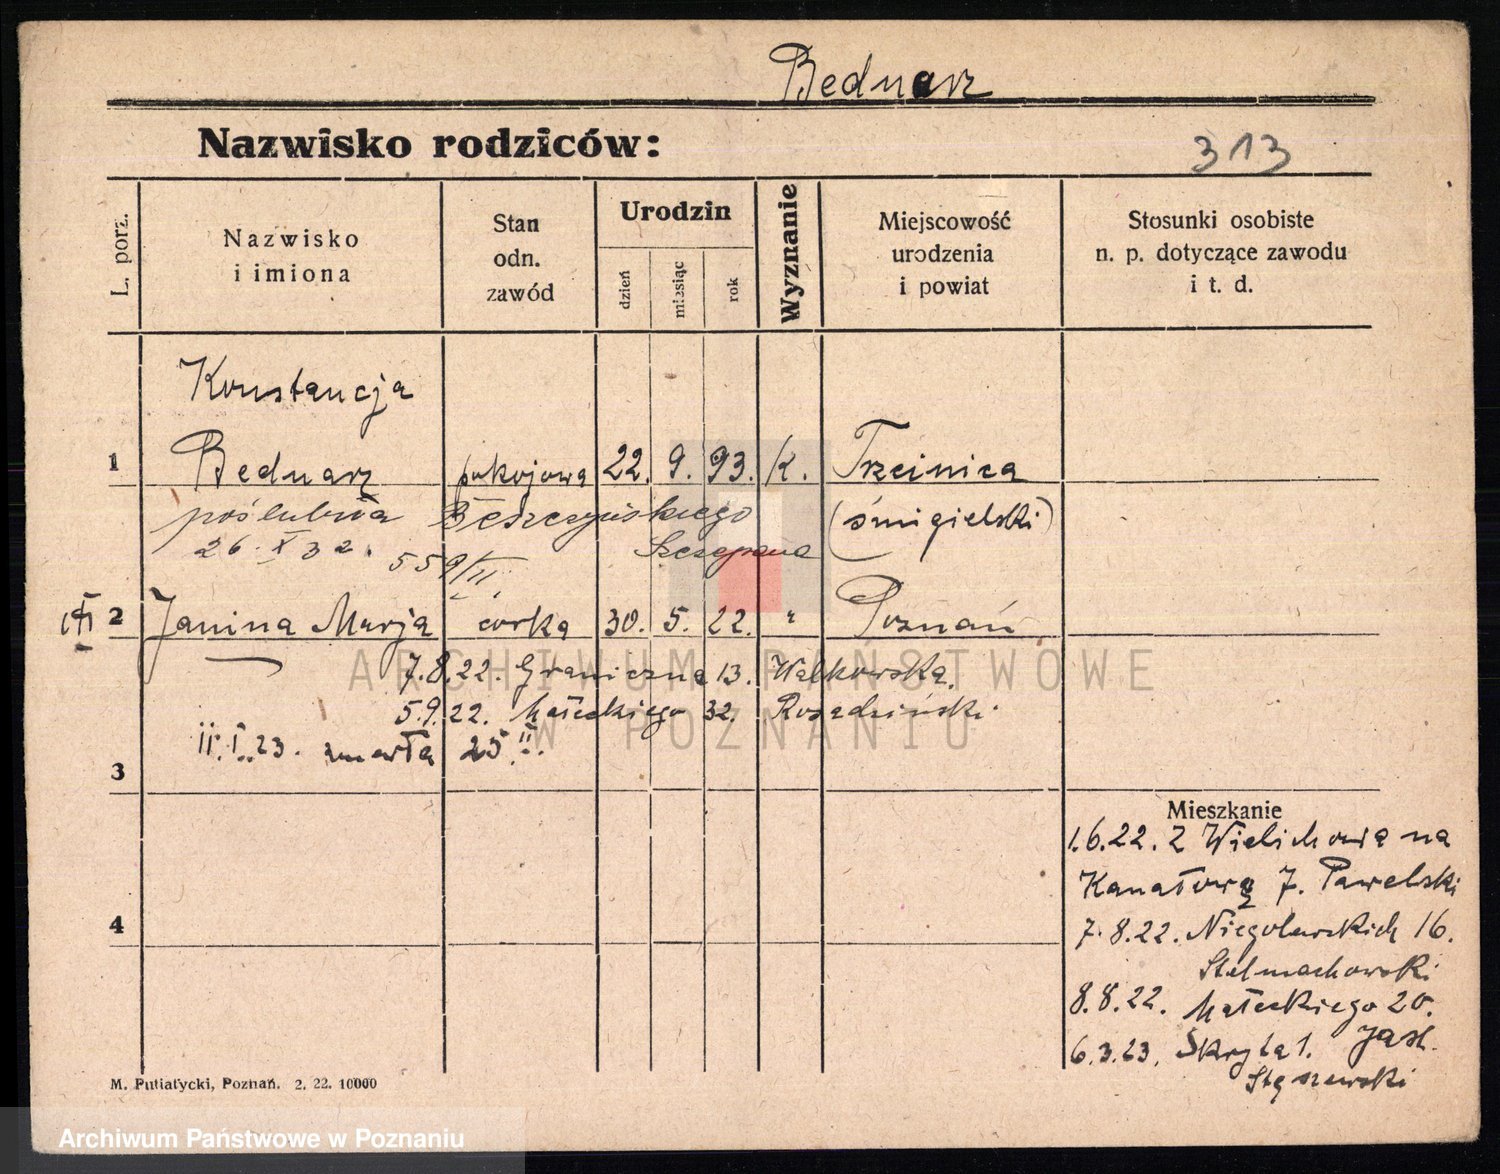 Bednarz
Nazwisko rodziców:
313
L. porz.
Nazwisko
i imiona
Stan
odn.
zawód
Urodzin
dzień
miesiąc
rok
Wyznanie
Miejscowość
urodzenia
i powiat
Stosunki osobiste
n. p. dotyczące zawodu
i t. d.
Konstancja
1 Bednarz pokojowa 22. 9. 93. k. Trzcinica
poślubiła Bęszczyńskiego (śmigielski)
26. X 32. Szczepana
559/II
2 Janina Marja córka 30. 5. 22. " Poznań
7.8.22. Graniczna 13. Walkowska.
5.9.22. Małeckiego 32. Rosadziński
II.I.23. zmarła 25.II.
3
Mieszkanie
1.6.22. Z Wielichowa na
Kanałową 7. Pawelski
4
7.8.22. Niegolewskich 16.
Stelmachowski
8.8.22. Małeckiego 20.
6.3.23. Skryta 1. Jasł.
Stęszewski
M. Putiatycki, Poznań. 2. 22. 10000
ARCHIWUM PAŃSTWOWE
W POZNANIU
Archiwum Państwowe w Poznaniu